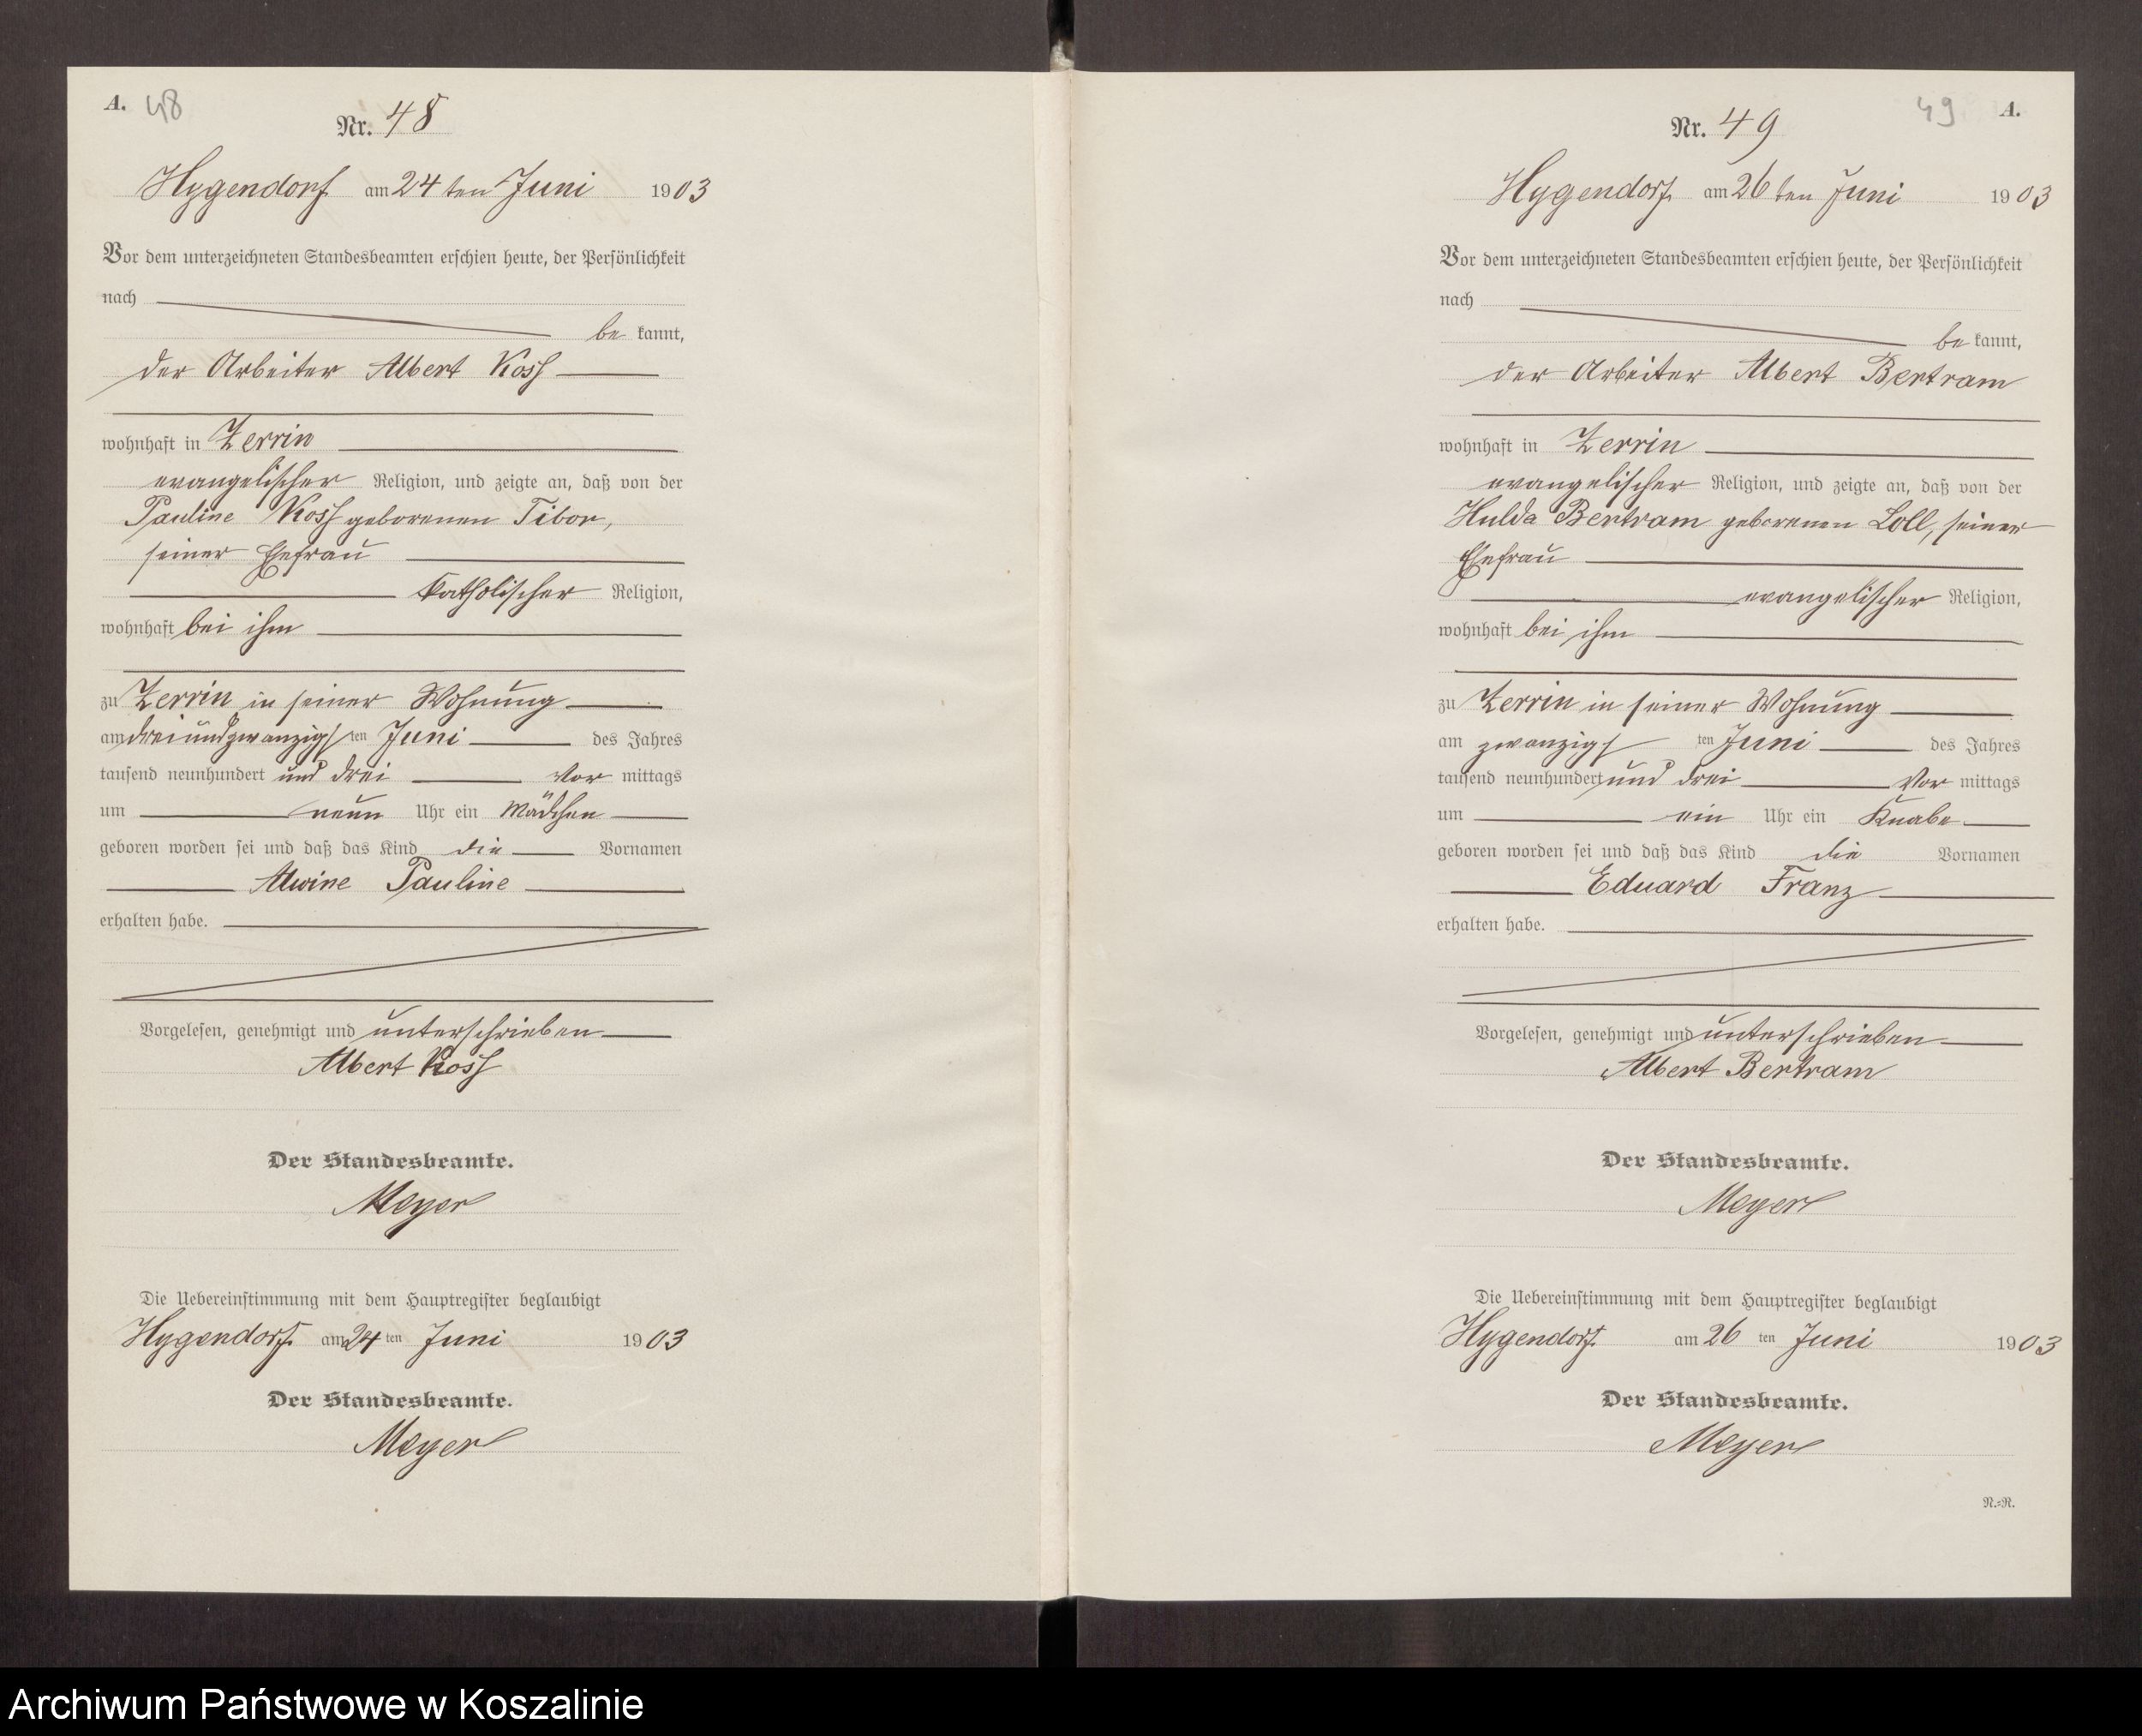 A. 48
Nr. 48
Hygendorf am 24 ten Juni 1903
Vor dem unterzeichneten Standesbeamten erschien heute, der Persönlichkeit
nach
be kannt,
der Arbeiter Albert Koss
wohnhaft in Zerrin
evangelischer Religion, und zeigte an, daß von der
Pauline Koss geborenen Tibor,
seiner Ehefrau
katholischer Religion,
wohnhaft bei ihm
zu Zerrin in seiner Wohnung
am dreiundzwanzigsten Juni des Jahres
tausend neunhundert und drei Vor mittags
um neun Uhr ein Mädchen
geboren worden sei und daß das Kind die Vornamen
Alwine Pauline
erhalten habe.
Vorgelesen, genehmigt und unterschrieben
Albert Koss
Der Standesbeamte.
Meyer
Die Uebereinstimmung mit dem Hauptregister beglaubigt
Hygendorf am 24 ten Juni 1903
Der Standesbeamte.
Meyer
49 A.
Nr. 49
Hygendorf am 26 ten Juni 1903
Vor dem unterzeichneten Standesbeamten erschien heute, der Persönlichkeit
nach
be kannt,
der Arbeiter Albert Bertram
wohnhaft in Zerrin
evangelischer Religion, und zeigte an, daß von der
Hulda Bertram geborenen Loll, seiner
Ehefrau
evangelischer Religion,
wohnhaft bei ihm
zu Zerrin in seiner Wohnung
am zwanzigsten Juni des Jahres
tausend neunhundert und drei Vor mittags
um ein Uhr ein Knabe
geboren worden sei und daß das Kind die Vornamen
Eduard Franz
erhalten habe.
Vorgelesen, genehmigt und unterschrieben
Albert Bertram
Der Standesbeamte.
Meyer
Die Uebereinstimmung mit dem Hauptregister beglaubigt
Hygendorf am 26 ten Juni 1903
Der Standesbeamte.
Meyer
R.=R.
Archiwum Państwowe w Koszalinie